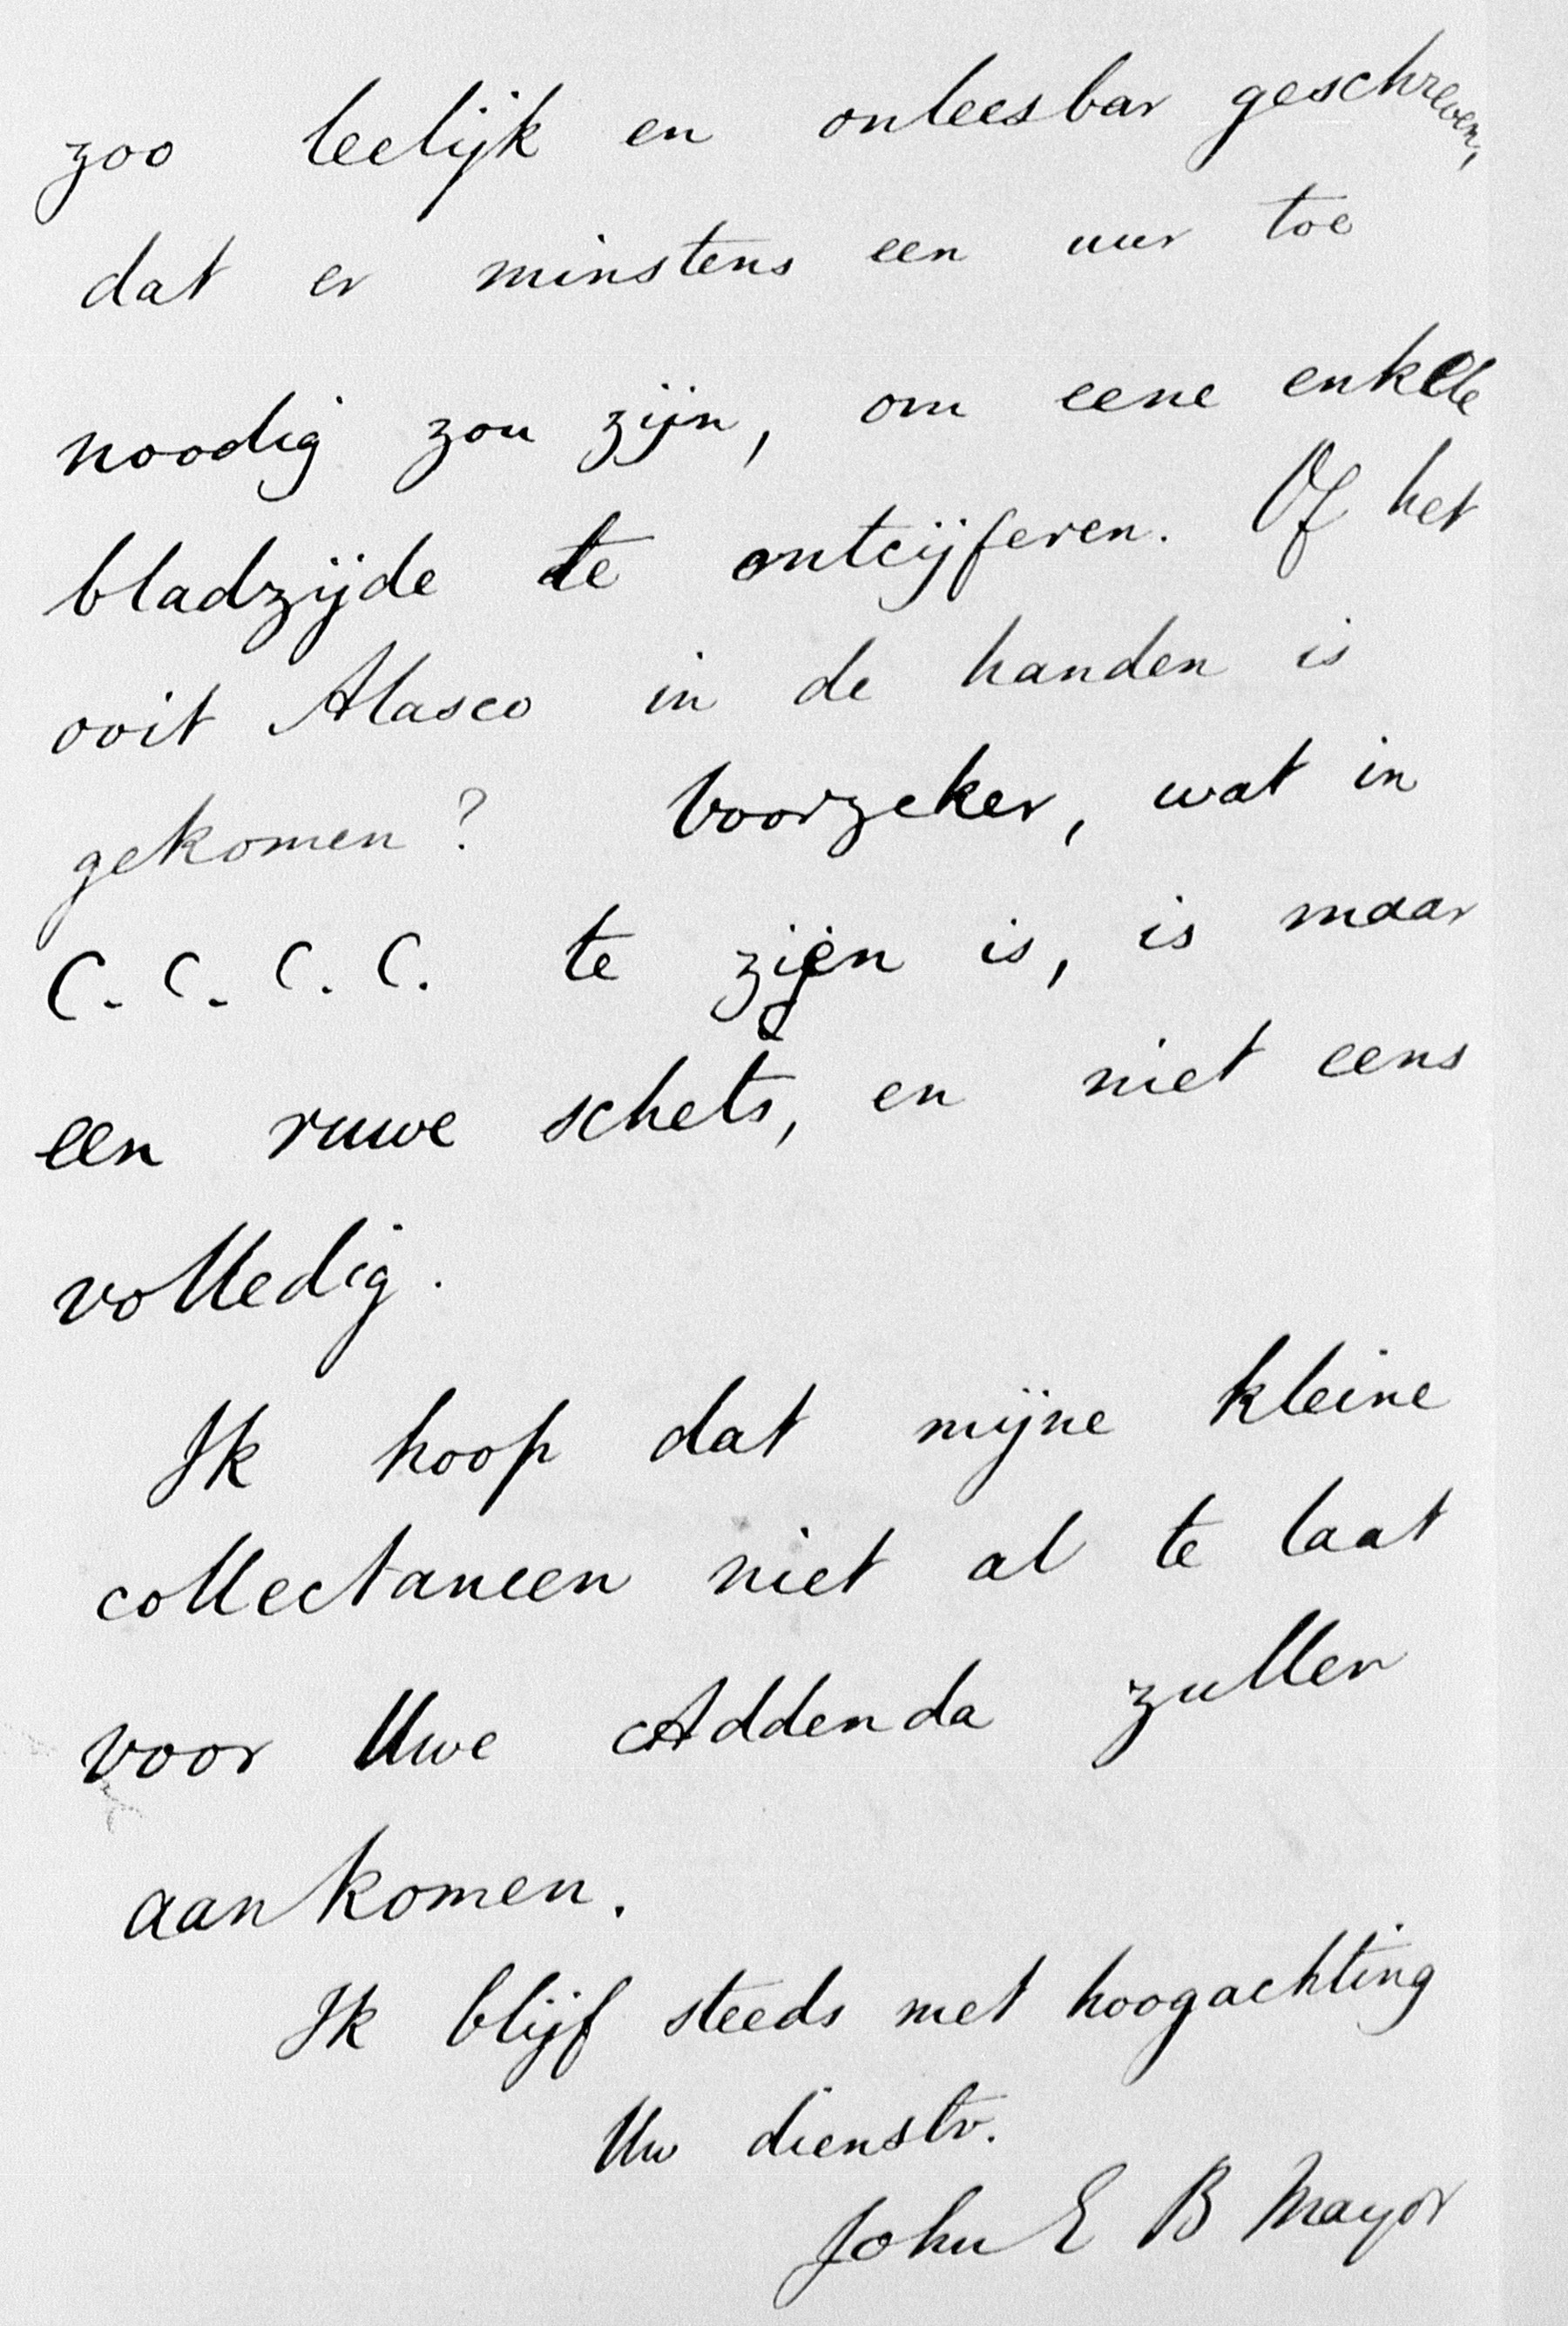 zoo leelijk en onleesbar geschreven,
dat er minstens een uur toe
noodig zou zijn, om eene enkele
bladzijde te ontcijferen. Of het
ooit Alasco in de handen is
gekomen? Voorzeker, wat in
C. C. C. C. te zien is, is maar
een ruwe schets, en niet eens
volledig.
Ik hoop dat mijne kleine
collectaneen niet al te laat
voor Uwe Addenda zullen
aankomen.
Ik blijf steeds met hoogachting
Uw dienstv.
John E B Mayor